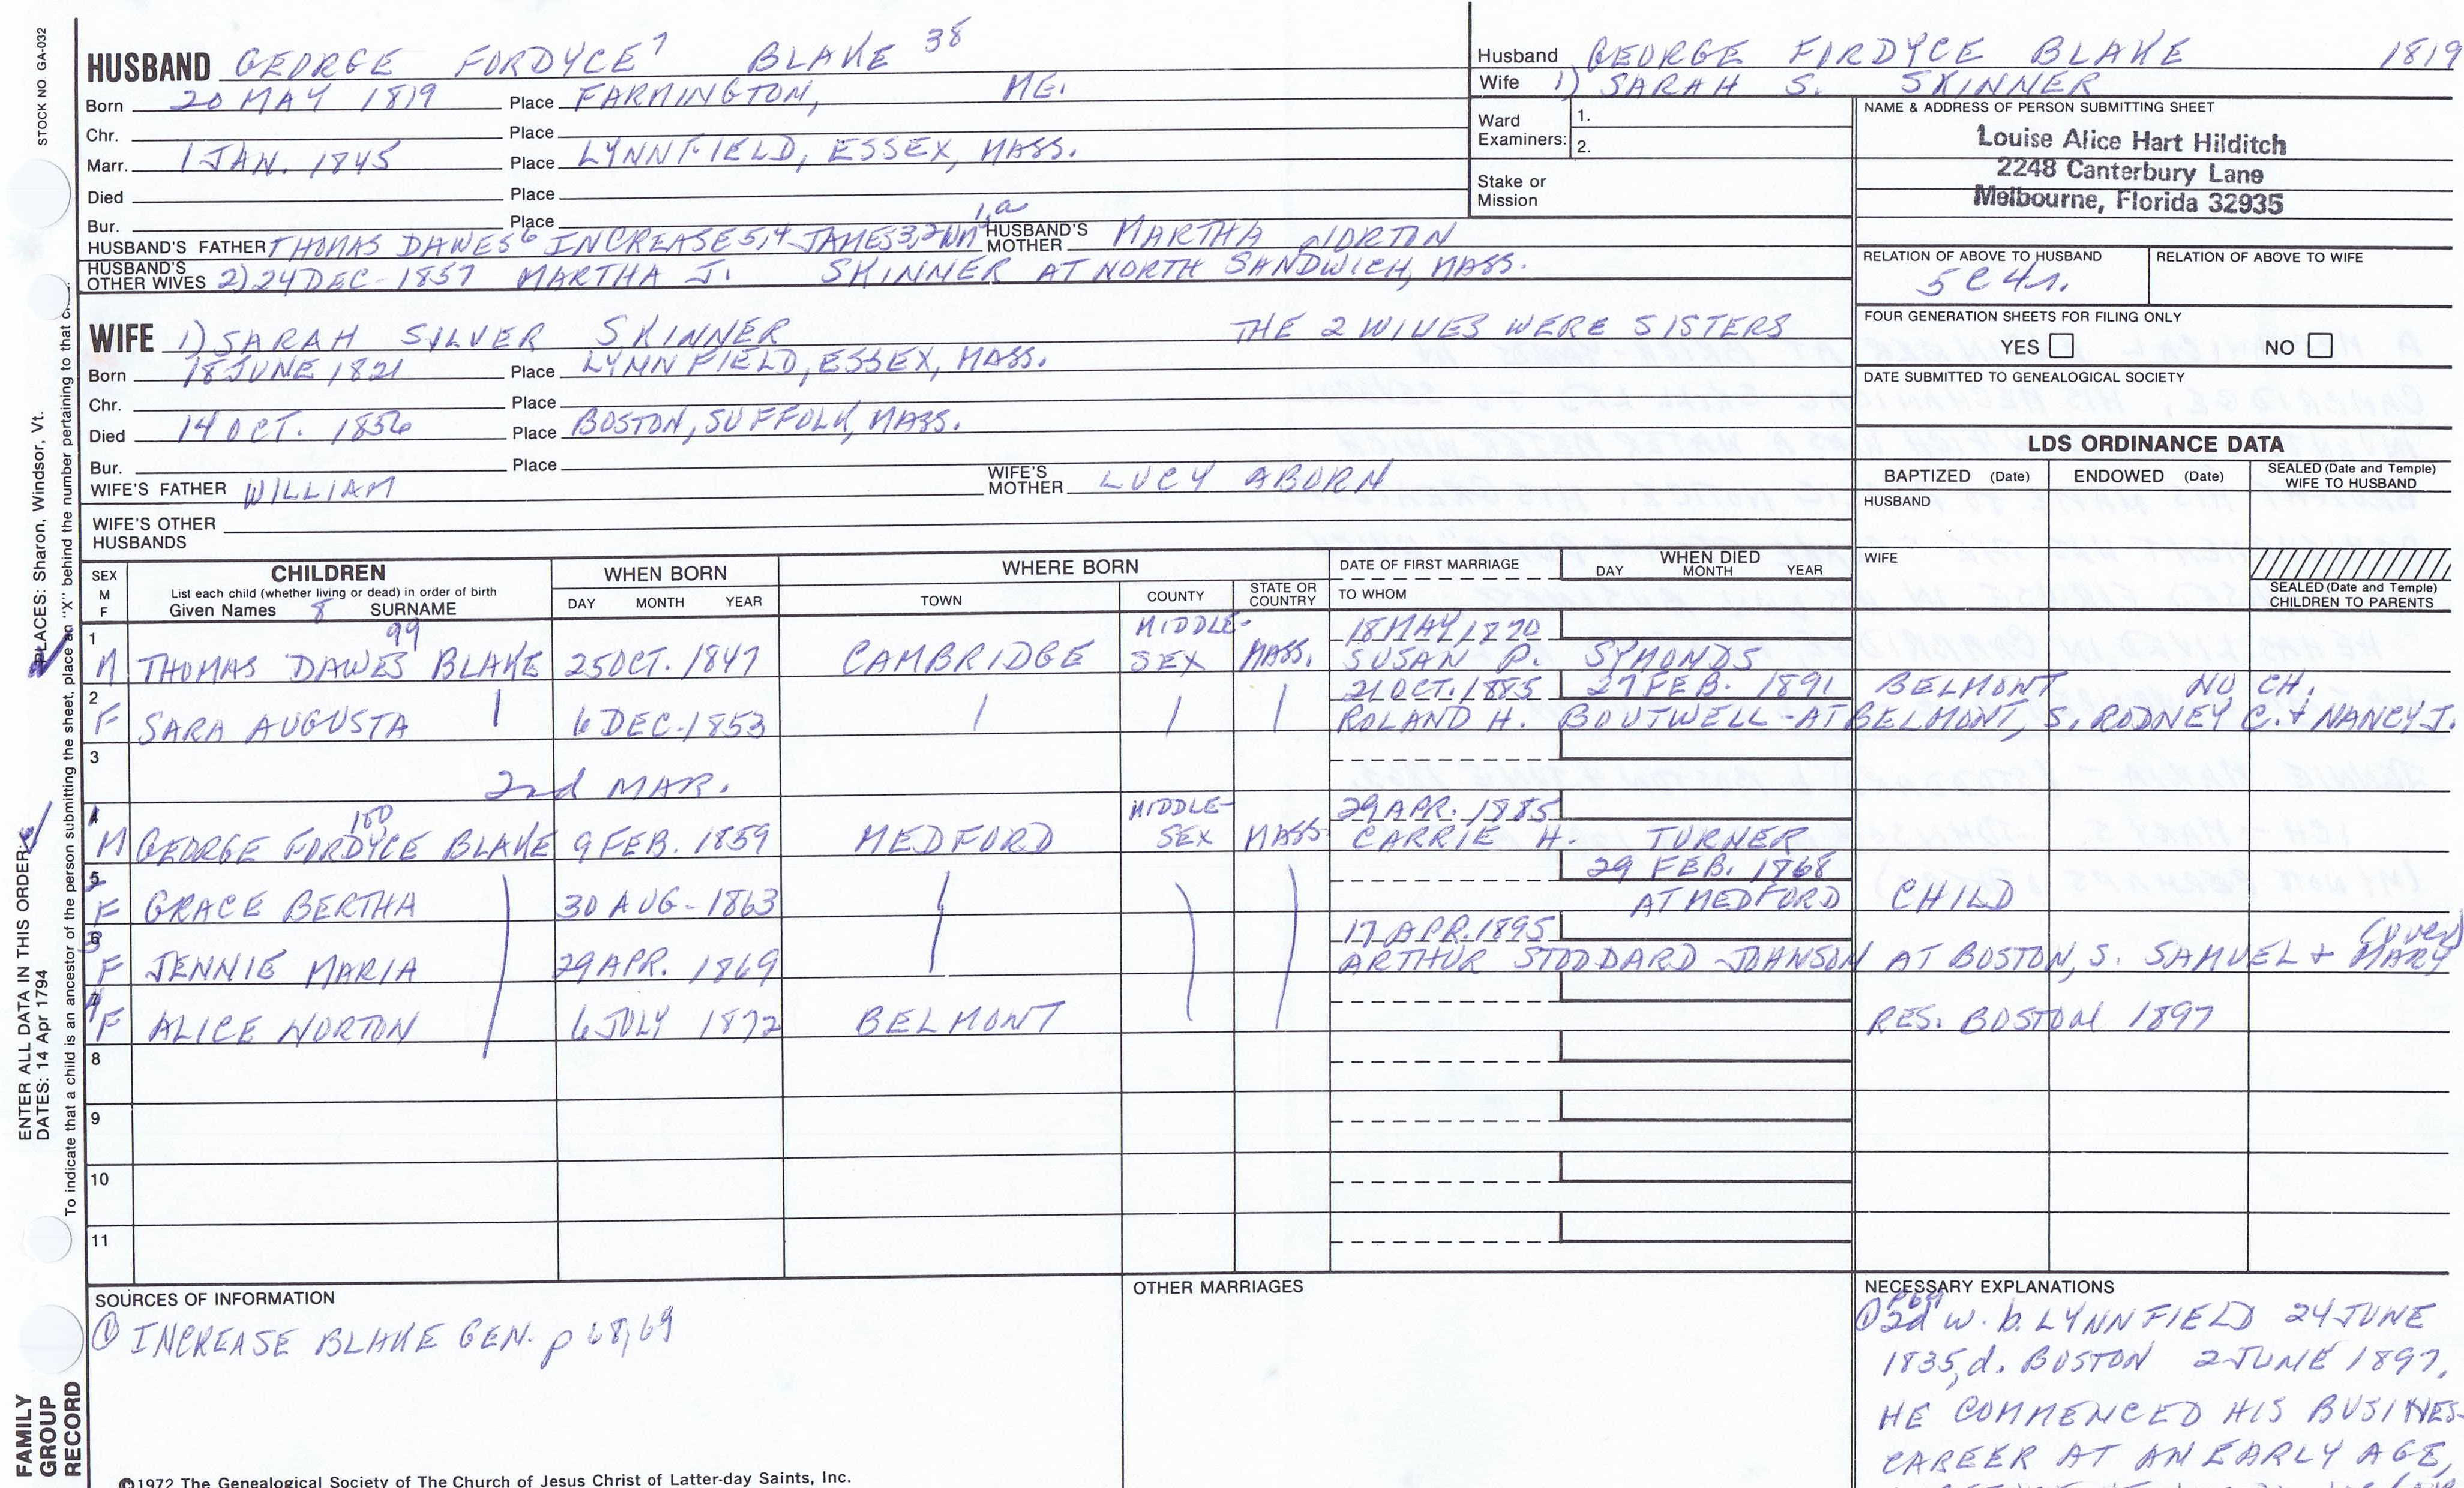 STOCK NO GA-032
HUSBAND GEORGE FORDYCE 7 BLAKE 38
Born 20 MAY 1819 Place FARMINGTON, ME.
Chr. Place
Marr. 1 JAN. 1845 Place LYNNFIELD, ESSEX, MASS.
Died Place
Bur. Place
HUSBAND'S FATHER THOMAS DAWES 6 INCREASE 5,4 JAMES 3,2 Wm 1,a HUSBAND'S MOTHER MARTHA NORTON
HUSBAND'S OTHER WIVES 2) 24 DEC - 1857 MARTHA J. SKINNER AT NORTH SANDWICH, MASS.
WIFE 1) SARAH SILVER SKINNER THE 2 WIVES WERE SISTERS
Born 18 JUNE 1821 Place LYNNFIELD, ESSEX, MASS.
Chr. Place
Died 14 OCT. 1856 Place BOSTON, SUFFOLK, MASS.
Bur. Place
WIFE'S FATHER WILLIAM WIFE'S MOTHER LUCY ABORN
WIFE'S OTHER HUSBANDS
Husband GEORGE FORDYCE BLAKE 1819
Wife 1) SARAH S. SKINNER
Ward Examiners: 1.
2.
Stake or Mission
NAME & ADDRESS OF PERSON SUBMITTING SHEET
Louise Alice Hart Hilditch
2248 Canterbury Lane
Melbourne, Florida 32935
RELATION OF ABOVE TO HUSBAND RELATION OF ABOVE TO WIFE
5 C 4 r.
FOUR GENERATION SHEETS FOR FILING ONLY
YES NO
DATE SUBMITTED TO GENEALOGICAL SOCIETY
LDS ORDINANCE DATA
BAPTIZED (Date) ENDOWED (Date) SEALED (Date and Temple) WIFE TO HUSBAND
HUSBAND
WIFE
SEALED (Date and Temple) CHILDREN TO PARENTS
SEX M F CHILDREN List each child (whether living or dead) in order of birth Given Names 8 SURNAME
WHEN BORN DAY MONTH YEAR
WHERE BORN TOWN COUNTY STATE OR COUNTRY
DATE OF FIRST MARRIAGE TO WHOM
WHEN DIED DAY MONTH YEAR
1 99 MIDDLE- 18 MAY 1870
M THOMAS DAWES BLAKE 25 OCT. 1847 CAMBRIDGE SEX MASS. SUSAN P. SYMONDS
2 21 OCT. 1885 27 FEB. 1891 BELMONT NO CH.
F SARA AUGUSTA 6 DEC - 1853 ROLAND H. BOUTWELL - AT BELMONT, S. RODNEY C. + NANCY J.
3
2nd MAR.
4 1 100 MIDDLE- 29 APR. 1885
M GEORGE FORDYCE BLAKE 9 FEB. 1859 MEDFORD SEX MASS. CARRIE H. TURNER
5 2 29 FEB. 1868
F GRACE BERTHA 30 AUG - 1863 AT MEDFORD CHILD
6 3 17 APR. 1895 (over)
F JENNIE MARIA 29 APR. 1869 ARTHUR STODDARD JOHNSON AT BOSTON, S. SAMUEL + MARY
7 4
F ALICE NORTON 6 JULY 1872 BELMONT RES. BOSTON 1897
8
9
10
11
SOURCES OF INFORMATION
① INCREASE BLAKE GEN. p 68, 69
OTHER MARRIAGES
NECESSARY EXPLANATIONS
① p 69
2d w. b. LYNNFIELD 24 JUNE
1835, d. BOSTON 2 JUNE 1897.
HE COMMENCED HIS BUSINES-
CAREER AT AN EARLY AGE,
©1972 The Genealogical Society of The Church of Jesus Christ of Latter-day Saints, Inc.
FAMILY GROUP RECORD
ENTER ALL DATA IN THIS ORDER:
PLACES: Sharon, Windsor, Vt.
DATES: 14 Apr 1794
To indicate that a child is an ancestor of the person submitting the sheet, place an "X" behind the number pertaining to that